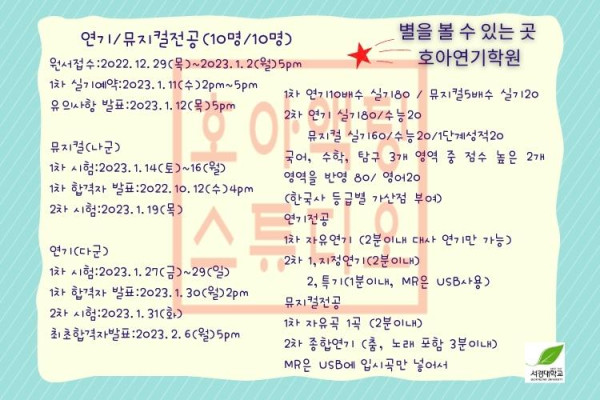 연기/뮤지컬전공(10명/10명)
원서접수:2022.12.29(목)~2023.1.2(월)5pm
1차 실기예약:2023.1.11(수)2pm~5pm
유의사항 발표:2023.1.12(목)5pm
뮤지컬(나군)
1차 시험:2023.1.14(토)~16(월)
1차 합격자 발표:2022.10.12(수)4pm
2차 시험:2023.1.19(목)
연기(다군)
1차 시험:2023.1.27(금)~29(일)
1차 합격자 발표:2023.1.30(월)2pm
2차 시험:2023.1.31(화)
최초합격자발표:2023.2.6(월)5pm
별을 볼 수 있는 곳
호아연기학원
1차 연기10배수 실기80 / 뮤지컬5배수 실기20
2차 연기 실기80/수능20
뮤지컬 실기60/수능20/1단계성적20
국어, 수학, 탐구 3개 영역 중 점수 높은 2개
영역을 반영 80/ 영어20
(한국사 등급별 가산점 부여)
연기전공
1차 자유연기 (2분이내 대사 연기만 가능)
2차 1,지정연기(2분이내)
2,특기(1분이내, MR은 USB사용)
뮤지컬전공
1차 자유곡 1곡 (2분이내)
2차 종합연기 (춤, 노래 포함 3분이내)
MR은 USB에 입시곡만 넣어서
호아액팅
스튜디오
서경대학교